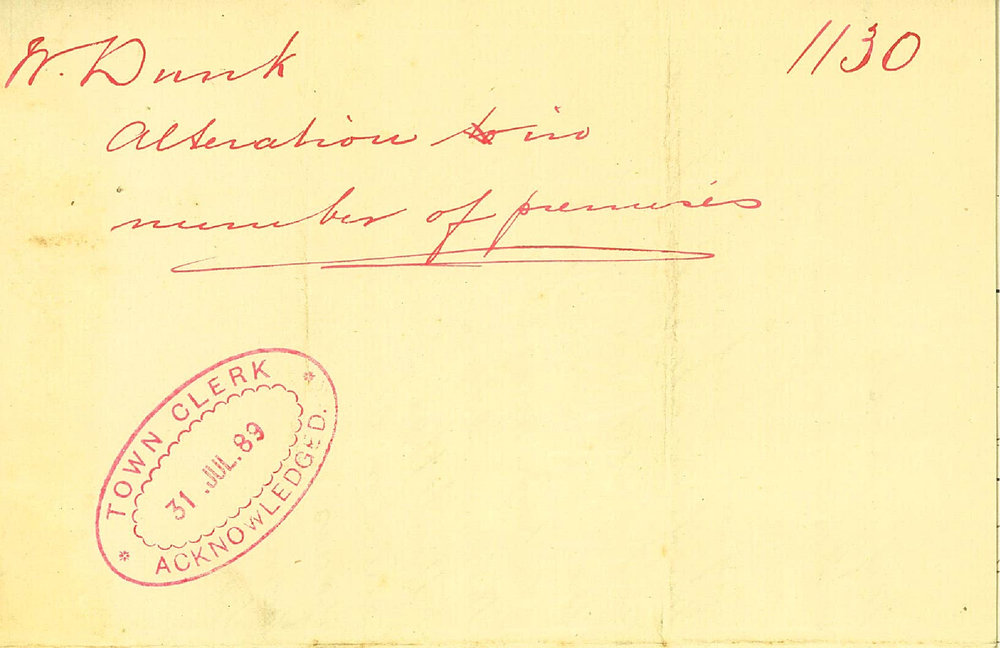 W. Dunk 1130
Alteration in
number of premises
TOWN CLERK
31 JUL. 89
ACKNOWLEDGED.